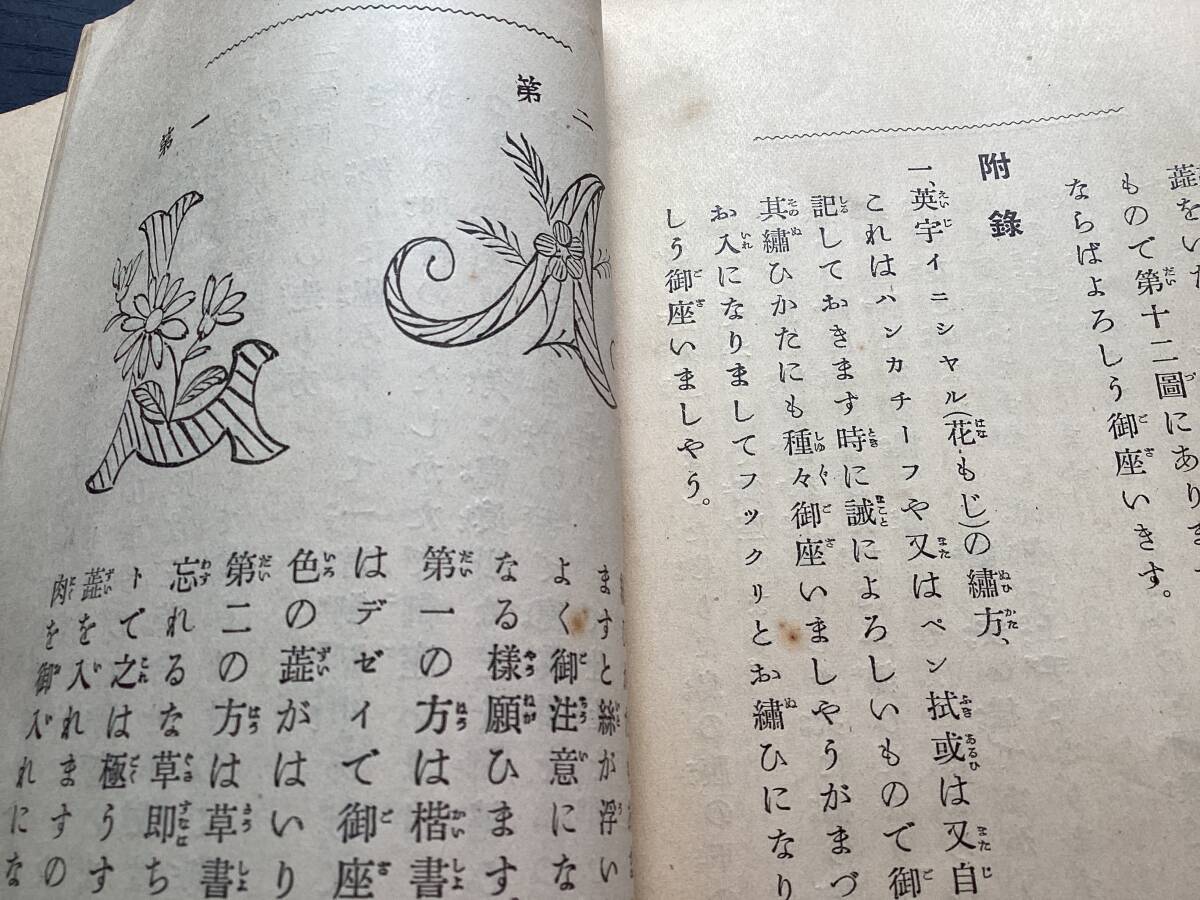 蕋をいた
もので第十二圖にありま
ならばよろしう御座いきす。
附錄
一、英字イニシャル(花もじ)の繡方、
これはハンカチーフや又はペン拭或は又自
記しておきます時に誠によろしいもので御
其繡ひかたにも種々御座いましやうがまづ
お入になりましてフックリとお繡ひになり
しう御座いましやう。
第二
第一
ますと絲が浮い
よく御注意にな
なる樣願ひます。
第一の方は楷書
はデゼイで御座
色の蕋がはいり
第二の方は草書
忘れるな草卽ち
トで之は極うす
蕋を入れますの
肉を御入れにな